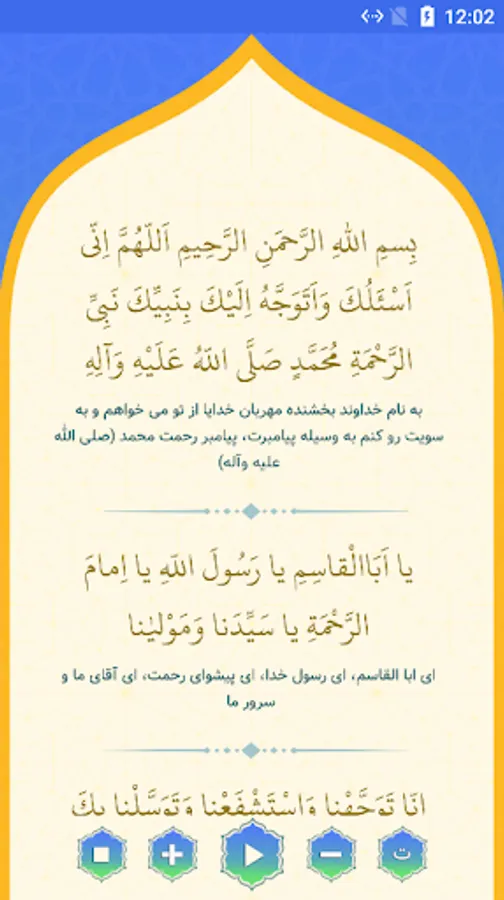 12:02
بِسمِ اللهِ الرَّحمَنِ الرَّحِيمِ اَللّهُمَّ اِنّى
اَسْئَلُكَ وَاَتَوَجَّهُ اِلَيْكَ بِنَبِيِّكَ نَبِىِّ
الرَّحْمَةِ مُحَمَّدٍ صَلَّى اللهُ عَلَيْهِ وَآلِهِ
به نام خداوند بخشنده مهربان خدایا از تو می خواهم و به
سویت رو کنم به وسیله پیامبرت، پیامبر رحمت محمد (صلی الله
علیه وآله)
يا اَبَاالْقاسِمِ يا رَسُولَ اللهِ يا اِمامَ
الرَّحْمَةِ يا سَيِّدَنا وَمَوْلينا
ای ابا القاسم، ای رسول خدا، ای پیشوای رحمت، ای آقای ما و
سرور ما
اِنّا تَوَجَّهْنا وَاسْتَشْفَعْنا وَتَوَسَّلْنا بِكَ
ت